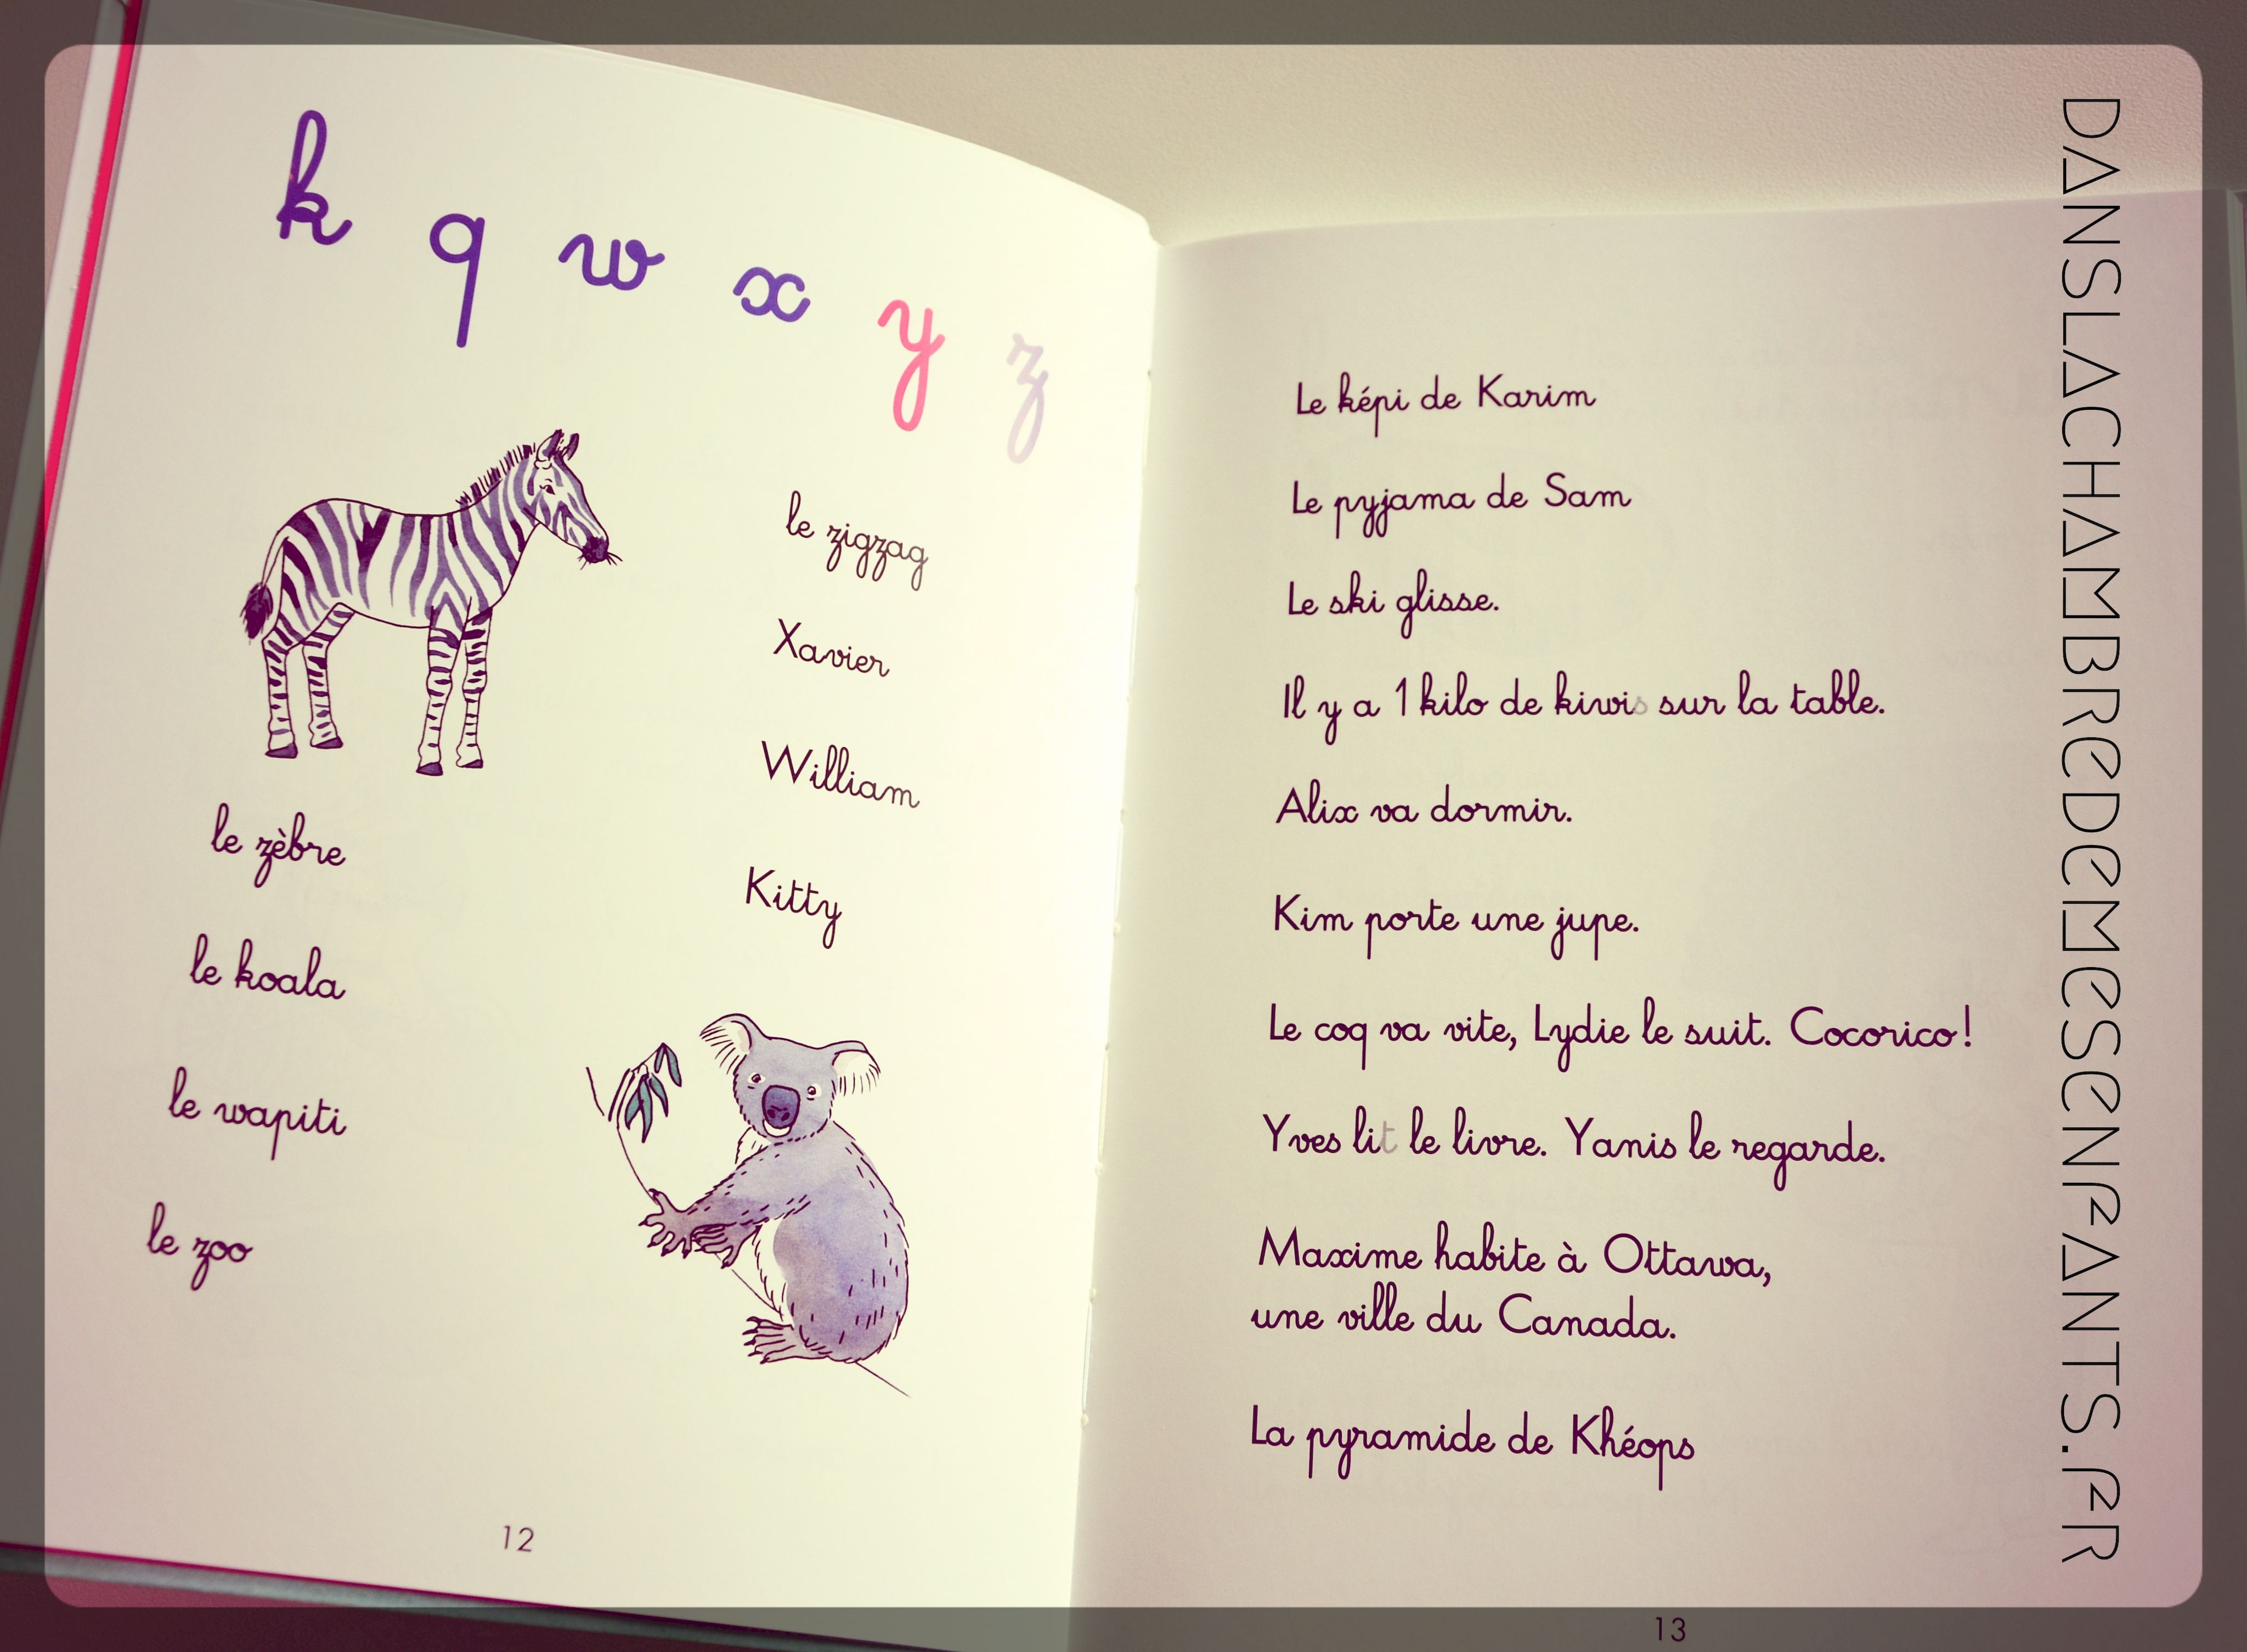 k q w x y z
le zigzag
Xavier
William
Kitty
le zèbre
le koala
le wapiti
le zoo
12
Le képi de Karim
Le pyjama de Sam
Le ski glisse.
Il y a 1 kilo de kiwis sur la table.
Alix va dormir.
Kim porte une jupe.
Le coq va vite, Lydie le suit. Cocorico !
Yves lit le livre. Yanis le regarde.
Maxime habite à Ottawa,
une ville du Canada.
La pyramide de Khéops
13
DANSLACHAMBREDEMESENFANTS.FR